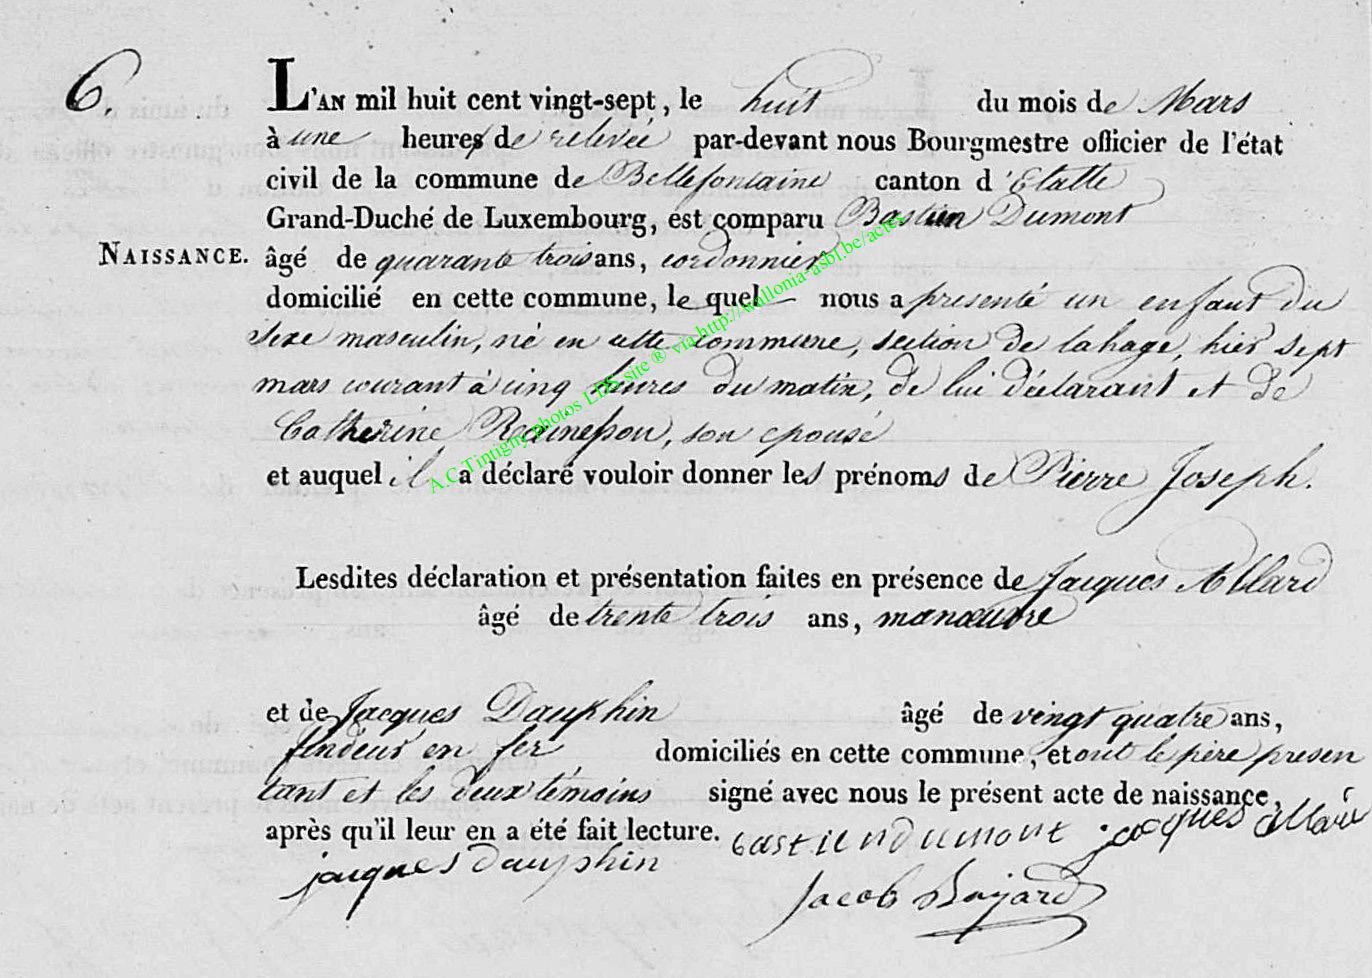 6.
L'AN mil huit cent vingt-sept, le huit du mois de Mars
à une heures de relevée par-devant nous Bourgmestre officier de l'état
civil de la commune de Bellefontaine canton d'Etalle
Grand-Duché de Luxembourg, est comparu Bastien Dumont
NAISSANCE. âgé de quarante trois ans, cordonnier
domicilié en cette commune, le quel nous a presenté un enfant du
sexe masculin, né en cette commune, section de lahage, hier sept
mars courant à cinq heures du matin, de lui déclarant et de
Catherine Rainesson, son epouse
et auquel il a déclaré vouloir donner les prénoms de Pierre Joseph.
Lesdites déclaration et présentation faites en présence de Jacques Allard
âgé de trente trois ans, manœuvre
et de Jacques Dauphin âgé de vingt quatre ans,
fendeur en fer domiciliés en cette commune, et ont le père presen
tant et les deux témoins signé avec nous le présent acte de naissance,
après qu'il leur en a été fait lecture. bastien dumont jacques allard
jacques dauphin Jacob Bajard
A.C.Tintigny photos LDS site ® via http://wallonia-asbl.be/actes